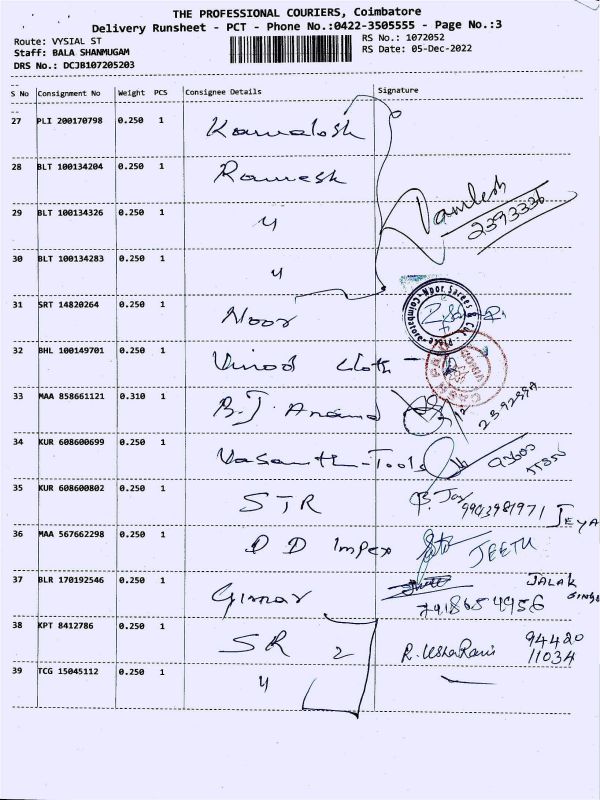 THE PROFESSIONAL COURIERS, Coimbatore
Delivery Runsheet - PCT - Phone No.:0422-3505555 - Page No.:3
Route: VYSIAL ST
RS No.: 1072052
Staff: BALA SHANMUGAM
RS Date: 05-Dec-2022
DRS No.: DCJB107205203
S No Consignment No Weight PCS Consignee Details Signature
27 PLI 200170798 0.250 1
28 BLT 100134204 0.250 1 Ramesh
29 BLT 100134326 0.250 1 "
2393336
30 BLT 100134283 0.250 1 "
31 SRT 14820264 0.250 1 Noor
32 BHL 100149701 0.250 1 Vinod Cloth
33 MAA 858661121 0.310 1 B.J. Anand
34 KUR 608600699 0.250 1 Vasanth-Tools
35 KUR 608600802 0.250 1 STR 9943981971 JEYA
36 MAA 567662298 0.250 1 D D Impex JEETU
37 BLR 170192546 0.250 1 JALAK SINGH
7418654956
38 KPT 8412786 0.250 1 SR 2 R. UshaRani 94420 11034
39 TCG 15045112 0.250 1 "